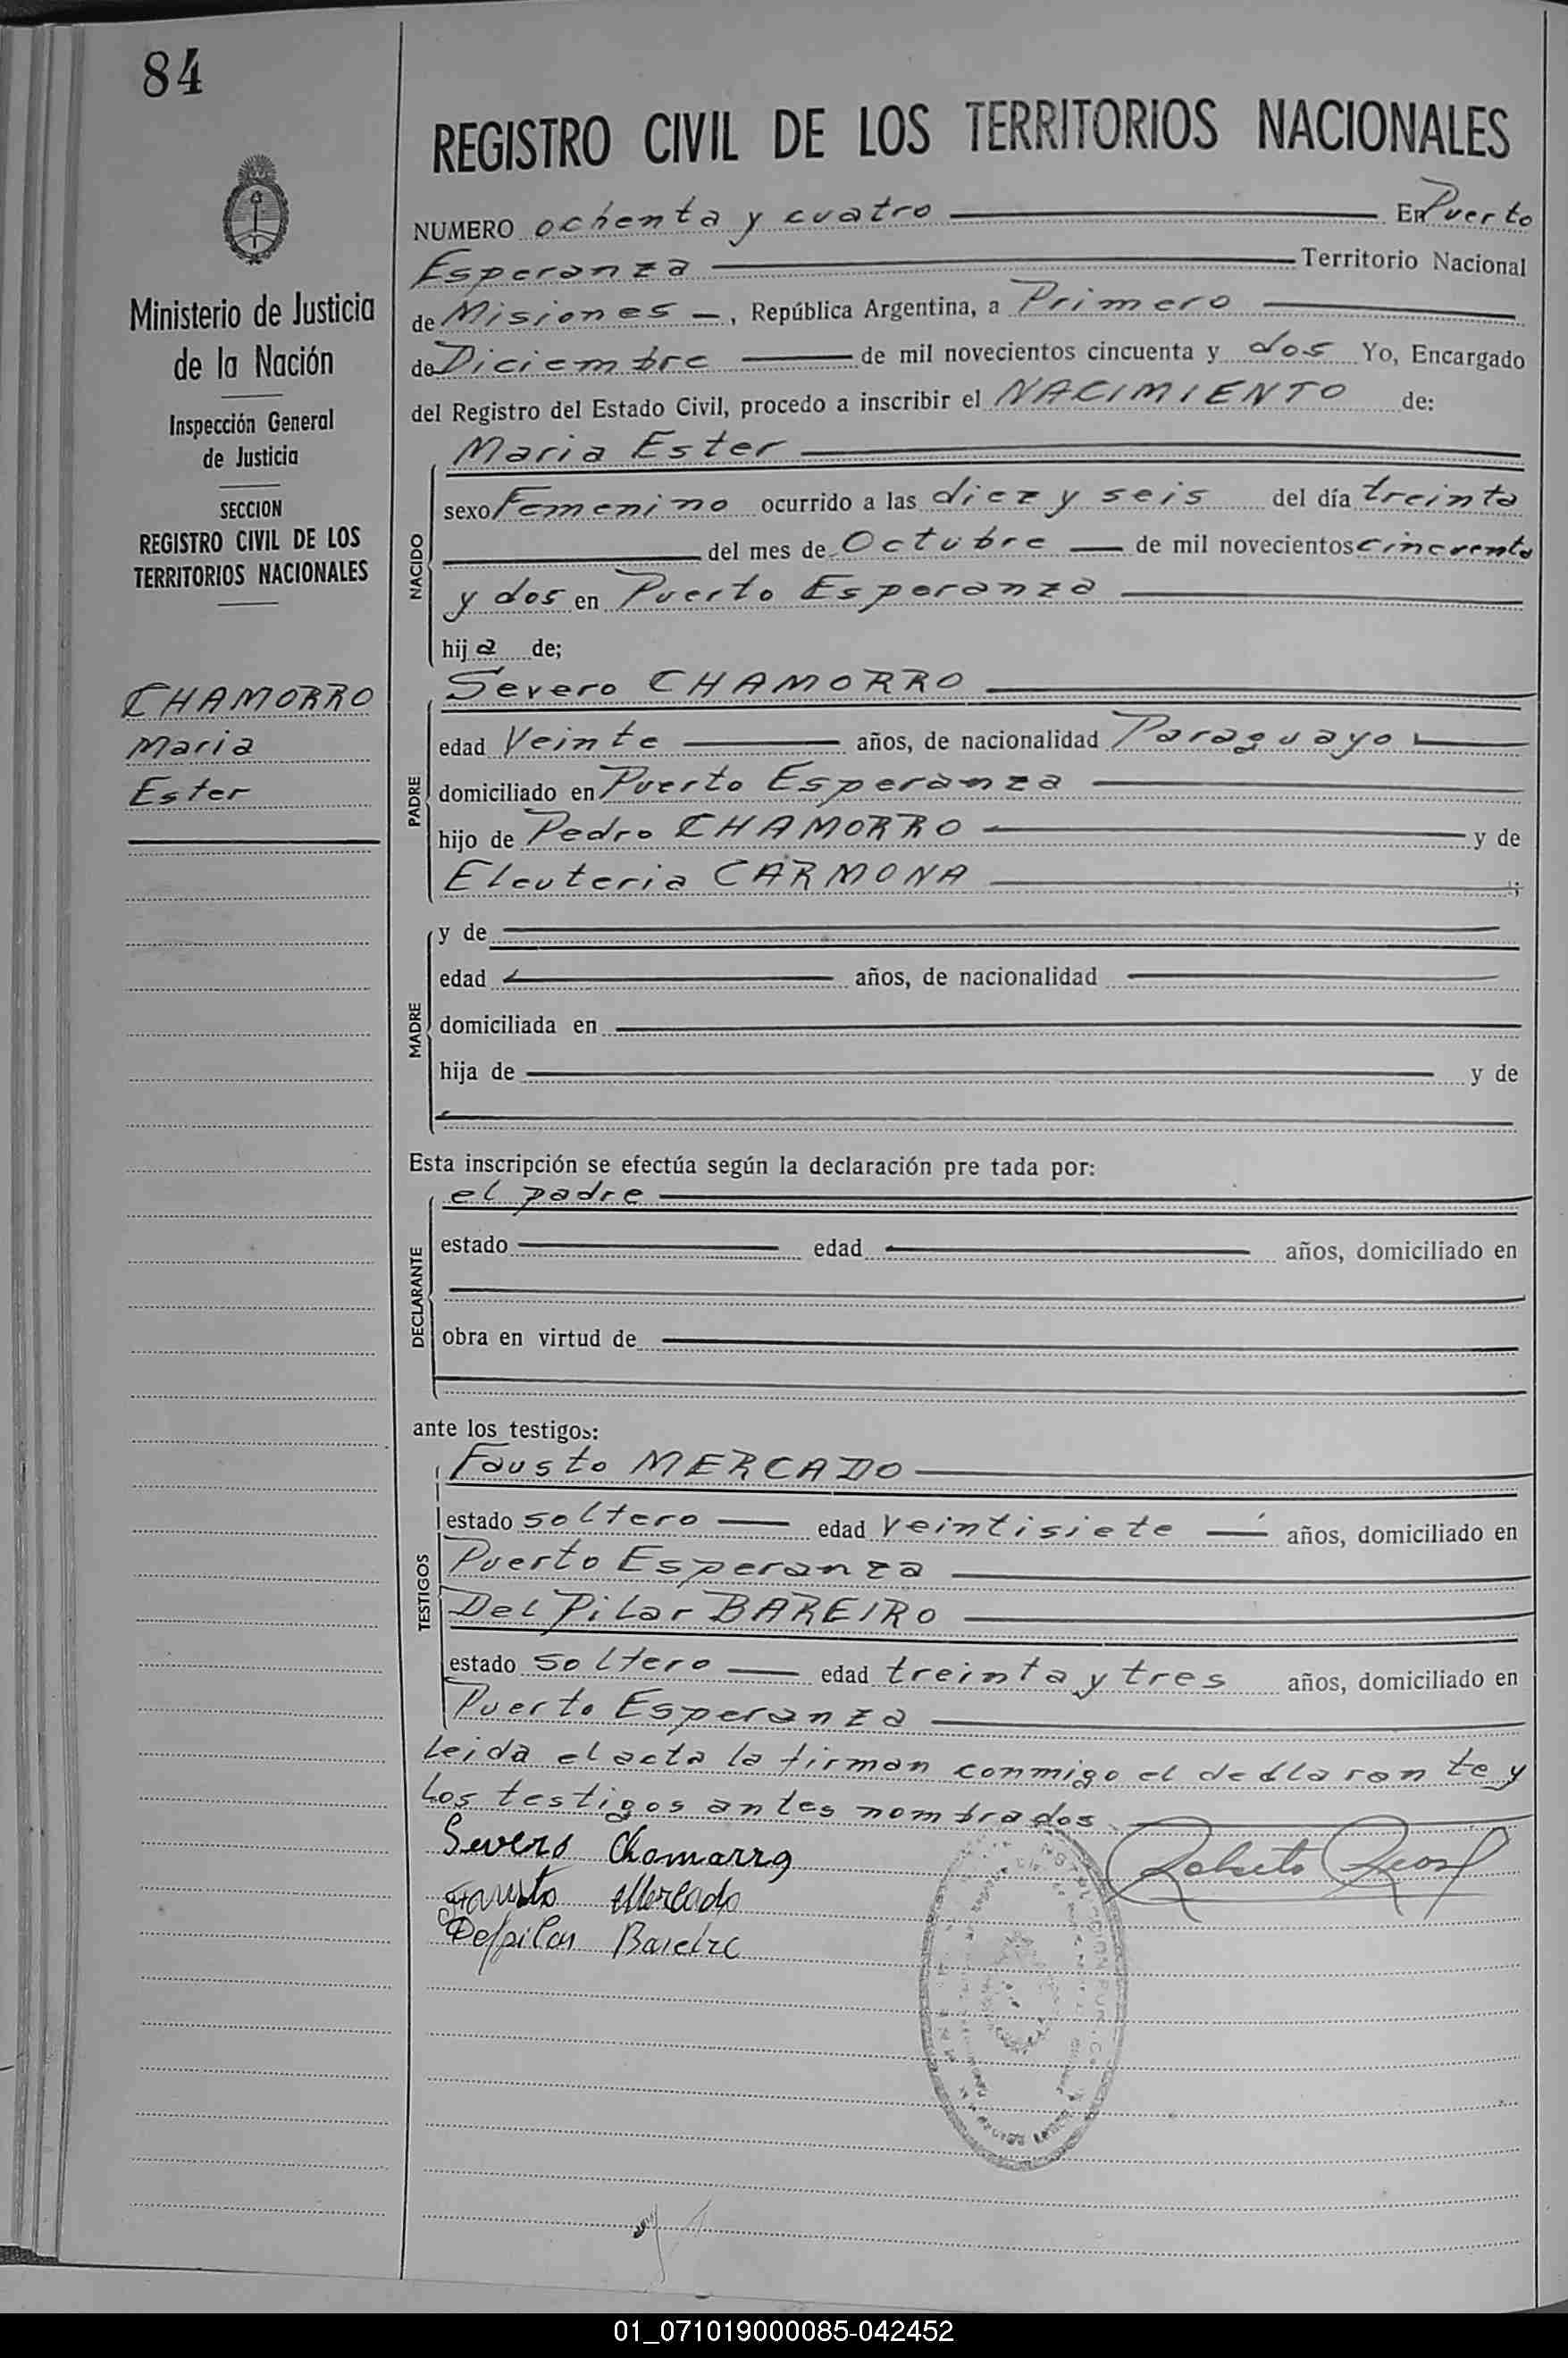 84
REGISTRO CIVIL DE LOS TERRITORIOS NACIONALES
Ministerio de Justicia
de la Nación
Inspección General
de Justicia
SECCION
REGISTRO CIVIL DE LOS
TERRITORIOS NACIONALES
CHAMORRO
Maria
Ester
NUMERO ochenta y cuatro En Puerto
Esperanza Territorio Nacional
de Misiones —, República Argentina, a Primero
de Diciembre de mil novecientos cincuenta y dos Yo, Encargado
del Registro del Estado Civil, procedo a inscribir el NACIMIENTO de:
NACIDO
Maria Ester
sexo Femenino ocurrido a las diez y seis del día treinta
del mes de Octubre — de mil novecientos cincuenta
y dos en Puerto Esperanza
hija de;
PADRE
Severo CHAMORRO
edad Veinte años, de nacionalidad Paraguayo
domiciliado en Puerto Esperanza
hijo de Pedro CHAMORRO y de
Eleuteria CARMONA ;
MADRE
y de
edad años, de nacionalidad
domiciliada en
hija de y de
Esta inscripción se efectúa según la declaración pre tada por:
DECLARANTE
el padre
estado edad años, domiciliado en
obra en virtud de
ante los testigos:
TESTIGOS
Fausto MERCADO
estado soltero — edad veintisiete — años, domiciliado en
Puerto Esperanza
Del Pilar BAREIRO
estado soltero — edad treinta y tres años, domiciliado en
Puerto Esperanza
Leida el acta la firman conmigo el declarante y
los testigos antes nombrados
Severo Chamarro
Fausto Mercado
Delpilar Bareiro
Roberto
01_071019000085-042452